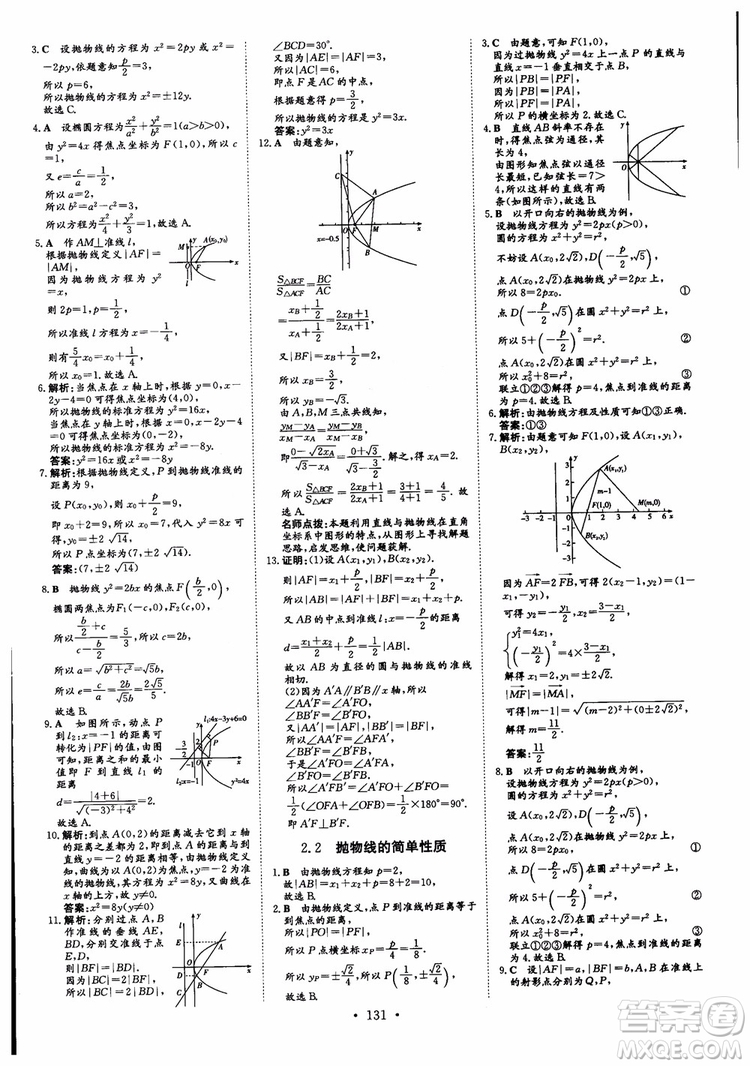 3.C 设抛物线的方程为 x²=2py 或 x²=
-2py,依题意知 p/2=3,
所以 p=6,
所以抛物线的方程为 x²=±12y.
故选 C.
4.A 设椭圆方程为 x²/a²+y²/b²=1(a>b>0),
由 y²=4x 得焦点坐标为 F(1,0),所以 c
=1,
又 e=c/a=1/2,
所以 a=2,
所以 b²=a²-c²=3,
所以方程为 x²/4+y²/3=1,故选 A.
5.A 作 AM⊥准线 l,
根据抛物线定义|AF|=
|AM|,
因为抛物线方程为 y²
=x,
则 2p=1,p=1/2,
所以准线方程为 x=-1/4,
则有 5/4 x₀=x₀+1/4,
所以 x₀=1.故选 A.
6.解析:当焦点在 x 轴上时,根据 y=0,x-
2y-4=0 可得焦点坐标为(4,0),
所以抛物线的标准方程为 y²=16x,
当焦点在 y 轴上时,根据 x=0,x-2y-4
=0 可得焦点坐标为(0,-2),
所以抛物线的标准方程为 x²=-8y.
答案:y²=16x 或 x²=-8y
7.解析:根据抛物线定义,P 到抛物线准线的
距离为 9,
设 P(x₀,y₀),所以 x₀+p/2=9,
即 x₀+2=9,所以 x₀=7,代入 y²=8x 可
得 y₀=±2√14,
所以坐标为(7,±2√14).
答案:(7,±2√14)
8.B 抛物线 y²=2bx 的焦点 F(b/2,0),
椭圆两焦点为F₁(-c,0),F₂(c,0),
所以 (b/2+c)/(c-b/2)=5/3,所以 c=2b,
所以 a=√(b²+c²)=√5b,
所以 e=c/a=2b/(√5b)=2√5/5.
故选 B.
9.A 如图,动点 P
到 l₂:x=-1 的距离可
转化为|PF|的距离,由
图可知,距离和的最小
值即 F 到直线 l₁ 的
距离
d=|4+6|/√((-3)²+4²)=2,
故选 A.
l₁:4x-3y+6=0
l₂:x=-1
y²=4x
10.解析:到点 A(0,2)的距离减去它到 x 轴
的距离等于 2 的动点,即动点到 A(0,2)
距离与到 y=-2 的距离相等,由抛物线定
义知,该动点轨迹是以 A(0,2)为焦点的抛
物线,其方程为 x²=8y(y≠0).
答案:x²=8y(y≠0)
11.解析:分别过点 A,B
作准线的垂线 AE,
BD,分别交准线于点
E,D,
则|BF|=|BD|.
因为|BC|=2|BF|,
所以|BC|=2|BD|,所以
∠BCD=30°.
又因为|AE|=|AF|=3,
所以|AC|=6,
即点 F 是 AC 的中点,
根据题意得 p=3/2,
所以抛物线的方程是 y²=3x.
答案:y²=3x
12.A 由题意知,
x=-0.5
S△BCF/S△ACF=BC/AC
=(xB+1/2)/(xA+1/2)=(2xB+1)/(2xA+1),
又|BF|=xB+1/2=2,
所以 xB=3/2,
所以 yB=-√3.
由 A,B,M 三点共线有
(yM-yA)/(xM-xA)=(yM-yB)/(xM-xB),
即(0-√(2xA))/(√3-xA)=(0+√3)/(√3-3/2),解得 xA=2,
所以 S△BCF/S△ACF=(2xB+1)/(2xA+1)=(3+1)/(4+1)=4/5.故
选 A.
名师点拨:本题利用直线与抛物线在直角
坐标系中图形的特点,从中寻找到解题
思路,启动思维,使问题获解.
13.证明:(1)设 A(x₁,y₁),B(x₂,y₂),
则|AF|=x₁+p/2,|BF|=x₂+p/2,
所以|AB|=|AF|+|BF|=x₁+x₂+p.
又 AB 的中点到准线 l:x=-p/2 的距离
d=(x₁+x₂)/2+p/2=1/2|AB|.
故以 AB 为直径的圆与抛物线的准线
相切.
(2)因为 A′A∥B′B∥x 轴,
所以∠AA′F=∠A′FO,
∠BB′F=∠B′FO.
又|AA′|=|AF|,|BB′|=|BF|,
所以∠AA′F=∠AFA′,
∠BB′F=∠BFB′,
所以∠AFA′=∠A′FO,
∠BFB′=∠B′FO,
所以 2(∠OFA′+∠OFB′)=180°,
即∠A′FB′=90°.
2.2 抛物线的简单性质
1.A 由抛物线方程知 p=2,
故选 A.
2.B 由抛物线定义,点 P 到准线的距离等于
|PF|的距离,
所以|PO|=|PF|,
所以 P 点横坐标 xP=p/4=1/8,
所以 yP=±√2/4,所以 P(1/8,±√2/4).
故选 B.
3.C 由题意,可知 F(1,0),
因为过抛物线 y²=4x 上一点 P 的直线与
直线 x=-1 垂直相交于点 B,
所以|PB|=|PF|,
又|PB|=|PA|,
所以|PF|=|PA|,
所以 P 的横坐标为 2.故选 C.
4.B 直线 AB 斜率不存在时,其
长为 4,
由图形知焦点弦以通径
长最短,已知弦长为 7>
4,所以这样的直线有两
条(如图所示),故选 B.
5.B 以开口向右的抛物线为例,
设抛物线方程为 y²=2px(p>0),
圆的方程为 x²+y²=r²,
不妨设 A(x₀,2√2),D(-p/2,√5),
点 A(x₀,2√2)在抛物线 y²=2px 上,
所以 8=2px₀, ①
点 D(-p/2,√5)在圆 x²+y²=r² 上,
所以 5+(-p/2)²=r², ②
点 A(x₀,2√2)在圆 x²+y²=r² 上,
所以 x₀²+8=r², ③
联立①②③解得 p=4,焦点到准线的距离
为 p=4.故选 B.
6.解析:由抛物线方程及性质可知①③正确.
答案:①③
7.解析:由题意可知 F(1,0),设 A(x₁,y₁),
B(x₂,y₂),
A(x₁,y₁)
m-1
F(1,0)
M(m,0)
B(x₂,y₂)
因为 AF=2FB,可得 2(x₂-1,y₂)=(1-x₁,
-y₁),
可得 y₂=-y₁/2,x₂=(3-x₁)/2,
y₁²=4x₁,
(-y₁/2)²=4×(3-x₁)/2,
解得 x₁=2,y₁=±2√2.
|MF|=|MA|,
可得|m-1|=√((m-2)²+(0±2√2)²)
解得 m=11/2.
答案:11/2
8.B 以开口向右的抛物线为例,
设抛物线方程为 y²=2px(p>0),
圆的方程为 x²+y²=r²,
不妨设 A(x₀,2√2),D(-p/2,√5),
点 A(x₀,2√2)在抛物线 y²=2px 上,
所以 8=2px₀, ①
点 D(-p/2,√5)在圆 x²+y²=r² 上,
所以 5+(-p/2)²=r², ②
点 A(x₀,2√2)在圆 x²+y²=r² 上,
所以 x₀²+8=r², ③
联立①②③解得 p=4,焦点到准线的距离
为 p=4.故选 B.
9.C 设|AF|=a,|BF|=b,A,B 在准线上
的射影点分别为 Q,P,
·131·
答案圈
MXEQ.COM